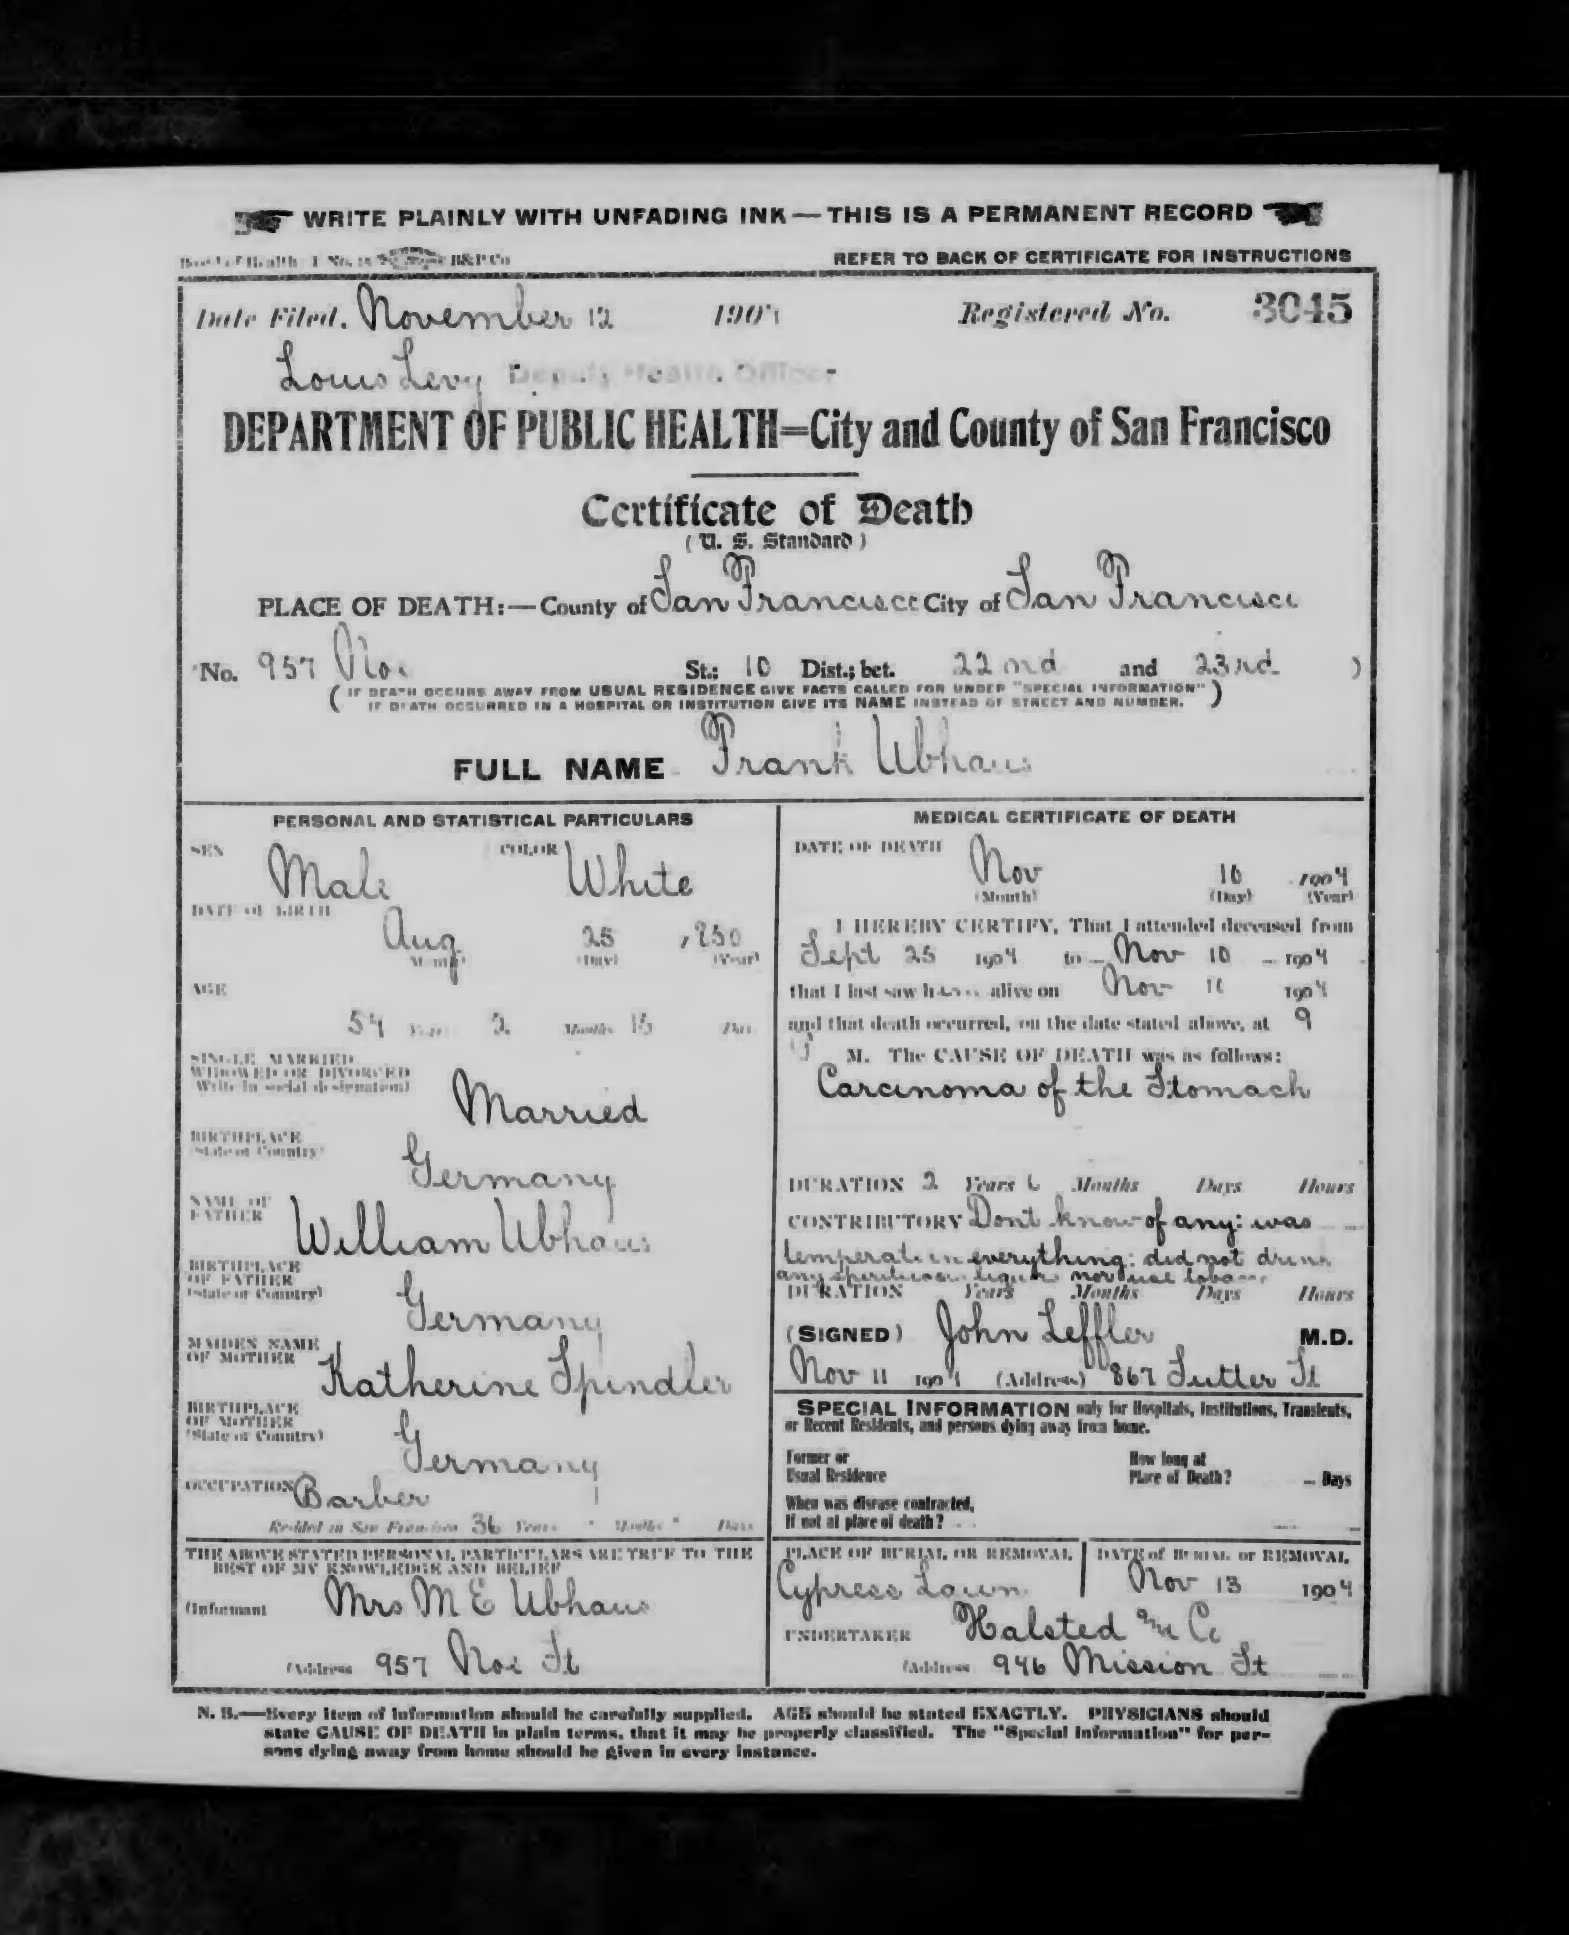 WRITE PLAINLY WITH UNFADING INK—THIS IS A PERMANENT RECORD
Board of Health B&P Co
REFER TO BACK OF CERTIFICATE FOR INSTRUCTIONS
Date Filed, November 12 1904 Registered No. 3045
Louis Levy Deputy Health Officer
DEPARTMENT OF PUBLIC HEALTH=City and County of San Francisco
Certificate of Death
(U. S. Standard)
PLACE OF DEATH:—County of San Francisco City of San Francisco
No. 957 Noe St.; 10 Dist.; bet. 22nd and 23rd )
( IF DEATH OCCURS AWAY FROM USUAL RESIDENCE GIVE FACTS CALLED FOR UNDER "SPECIAL INFORMATION" )
IF DEATH OCCURRED IN A HOSPITAL OR INSTITUTION GIVE ITS NAME INSTEAD OF STREET AND NUMBER.
FULL NAME Frank Ubhaus
PERSONAL AND STATISTICAL PARTICULARS
SEX Male COLOR White
DATE OF BIRTH Aug 25 1850
(Month) (Day) (Year)
AGE
54 Years 2 Months 15 Days
SINGLE, MARRIED
WIDOWED OR DIVORCED
(Write in social designation)
Married
BIRTHPLACE
(State or Country)
Germany
NAME OF
FATHER
William Ubhaus
BIRTHPLACE
OF FATHER
(State or Country)
Germany
MAIDEN NAME
OF MOTHER
Katherine Spindler
BIRTHPLACE
OF MOTHER
(State or Country)
Germany
OCCUPATION Barber
Resided in San Francisco 36 Years " Months " Days
THE ABOVE STATED PERSONAL PARTICULARS ARE TRUE TO THE
BEST OF MY KNOWLEDGE AND BELIEF
(Informant Mrs M E Ubhaus
(Address 957 Noe St
MEDICAL CERTIFICATE OF DEATH
DATE OF DEATH Nov 10 1904
(Month) (Day) (Year)
I HEREBY CERTIFY, That I attended deceased from
Sept 25 1904 to Nov 10 1904
that I last saw h alive on Nov 10 1904
and that death occurred, on the date stated above, at 9
M. The CAUSE OF DEATH was as follows:
Carcinoma of the Stomach
DURATION 2 Years 6 Months Days Hours
CONTRIBUTORY Dont know of any: was
temperate in everything: did not drink
any spirituous liquors nor use tobacco
DURATION Years Months Days Hours
(SIGNED) John Leffler M.D.
Nov 11 1904 (Address) 867 Sutter St
SPECIAL INFORMATION only for Hospitals, Institutions, Transients,
or Recent Residents, and persons dying away from home.
Former or
Usual Residence
How long at
Place of Death? Days
When was disease contracted,
If not at place of death?
PLACE OF BURIAL OR REMOVAL
Cypress Lawn
DATE of BURIAL or REMOVAL
Nov 13 1904
UNDERTAKER Halsted and Co
(Address 946 Mission St
N. B.—Every item of information should be carefully supplied. AGE should be stated EXACTLY. PHYSICIANS should
state CAUSE OF DEATH in plain terms, that it may be properly classified. The "Special Information" for per-
sons dying away from home should be given in every instance.